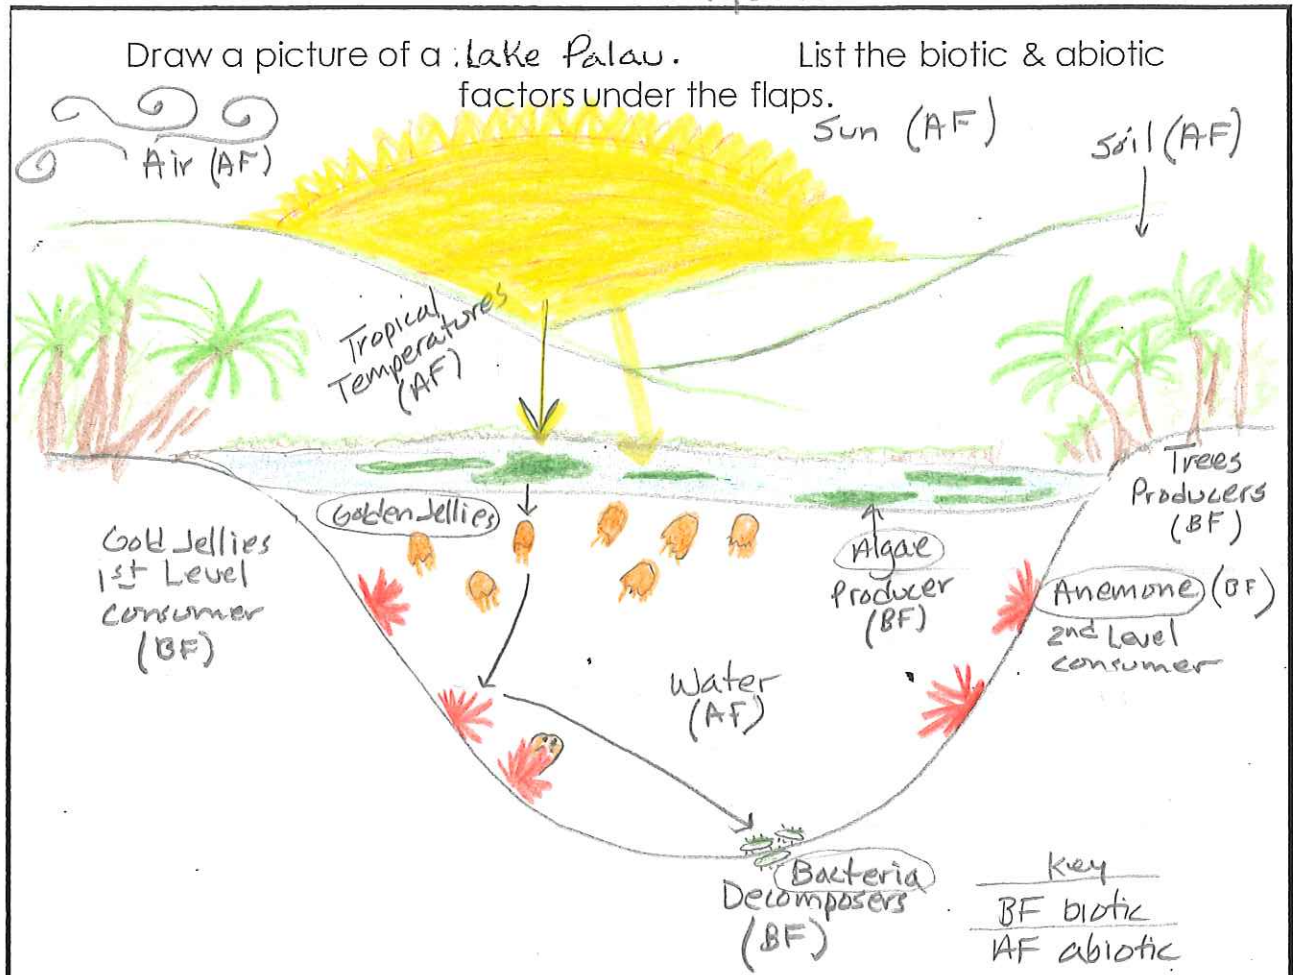 Draw a picture of a : Lake Palau. List the biotic & abiotic
factors under the flaps.
Air (AF)
Sun (AF)
Soil (AF)
Tropical
Temperatures
(AF)
Trees
Producers
(BF)
Golden Jellies
Gold Jellies
1st Level
consumer
(BF)
Algae
Producer
(BF)
Anemone (BF)
2nd Level
consumer
Water
(AF)
Bacteria
Decomposers
(BF)
Key
BF biotic
AF abiotic